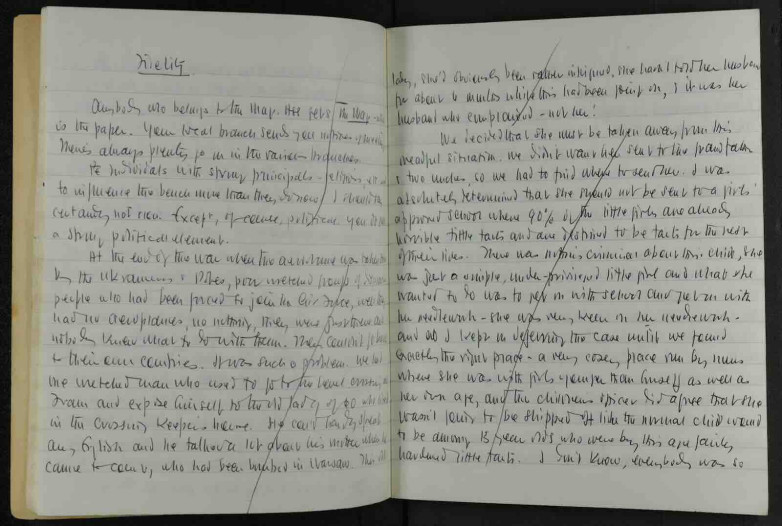 Anybody who belongs to the Mag. Ass gets The Mag - who
is the paper. Your local branch sends you notices of meetings
There's always plenty go on in the various branches.
to influence the bench more than they do now, I should
certainly not sign. Except, of course, politically you do see
a strong political element.
At the end of the war when the aerodrome was taken
by the Ukranians & Poles, poor wretched
people who had been forced to join the Air Force, well they
had no aeroplanes, no nothing, they were just there and
nobody knew what to do with them. They couldn't go back
to their own countries. It was such a problem. We had
one wretched man who used to go to the level crossing at
and expose himself to the old lady of 90 who lived
in the crossing keeper's house. He could hardly speak
any English and he talked a lot about his mother when he
came to court, who had been bombed in Warsaw. This old
lady, she'd obviously been rather intrigued, she hadn't told her husband
for about 6 months while this had been going on, & it was her
husband who complained - not her!
We decided that she must be taken away from this
dreadful situation. We didn't want her sent to the grandfather
& two uncles, so we had to find where to send her. I was
absolutely determined that she should not be sent to a girls'
approved school where 90% of the little girls are already
horrible little tarts and are destined to be tarts for the rest
of their lives. There was nothing criminal about this child, she
was just a simple, under-privileged little girl and what she
wanted to do was to get on with school and get on with
her needlework - she was very keen on her needlework -
and so I kept on deferring the case until we found
exactly the right place - a very cosy place run by nuns
where she was with girls younger than herself as well as
her own age, and the childrens officer did agree that she
wasn't going to be shipped off like the normal child would
to be among 15 year olds who were by this age fairly
hardened little tarts. I don't know, everybody was so